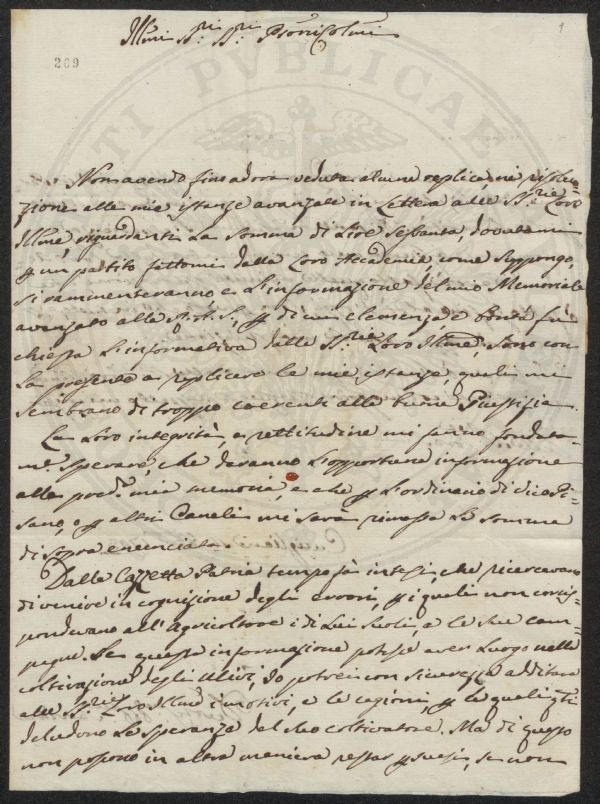 1
Illmi Sri Sri Proni Colmi
269
Non avendo fino adora veduta alcuna replica, ne risolu=
zione alle mie istanze avanzate in Lettera alle S.rie Loro
Illme riguardanti La somma di Lire Sessanta, dovutami
p un partito fattomi dalla Loro Accademia, come suppongo,
si rammenteranno, e L'informazione del mio Memoriale
avanzato alla S., p di cui clemenza, e fu
chiesta L'informativa dalle S.rie Loro Illme, sono con
La presente a replicare le mie istanze, quali mi
sembrano di troppo coerenti alla buona Giustizia.
La Loro integrità, e rettitudine mi fanno fondata=
me sperare, che daranno L'opportuna informazione
alla pred.a mia memoria, e che p L'ordinario di
sano, o p altri Canali mi sarà rimessa La somma
di sopra enunciata.
Dalla Gazzetta Patria tempo fà intesi, che ricercavano
di venire in cognizione degli errori, p i quali non corris=
pondevano all'Agricoltore i di Lui suoli, e le sue cam=
pagne. Se questa informazione potesse aver Luogo nella
coltivazione degli Ulivi, Io potrei con sicurezza additare
alle S.rie Loro Illme i motivi, e le cagioni, p le quali
deludono Le speranze del suo coltivatore. Ma di questo
non possono in altra maniera restar psuasi, se non